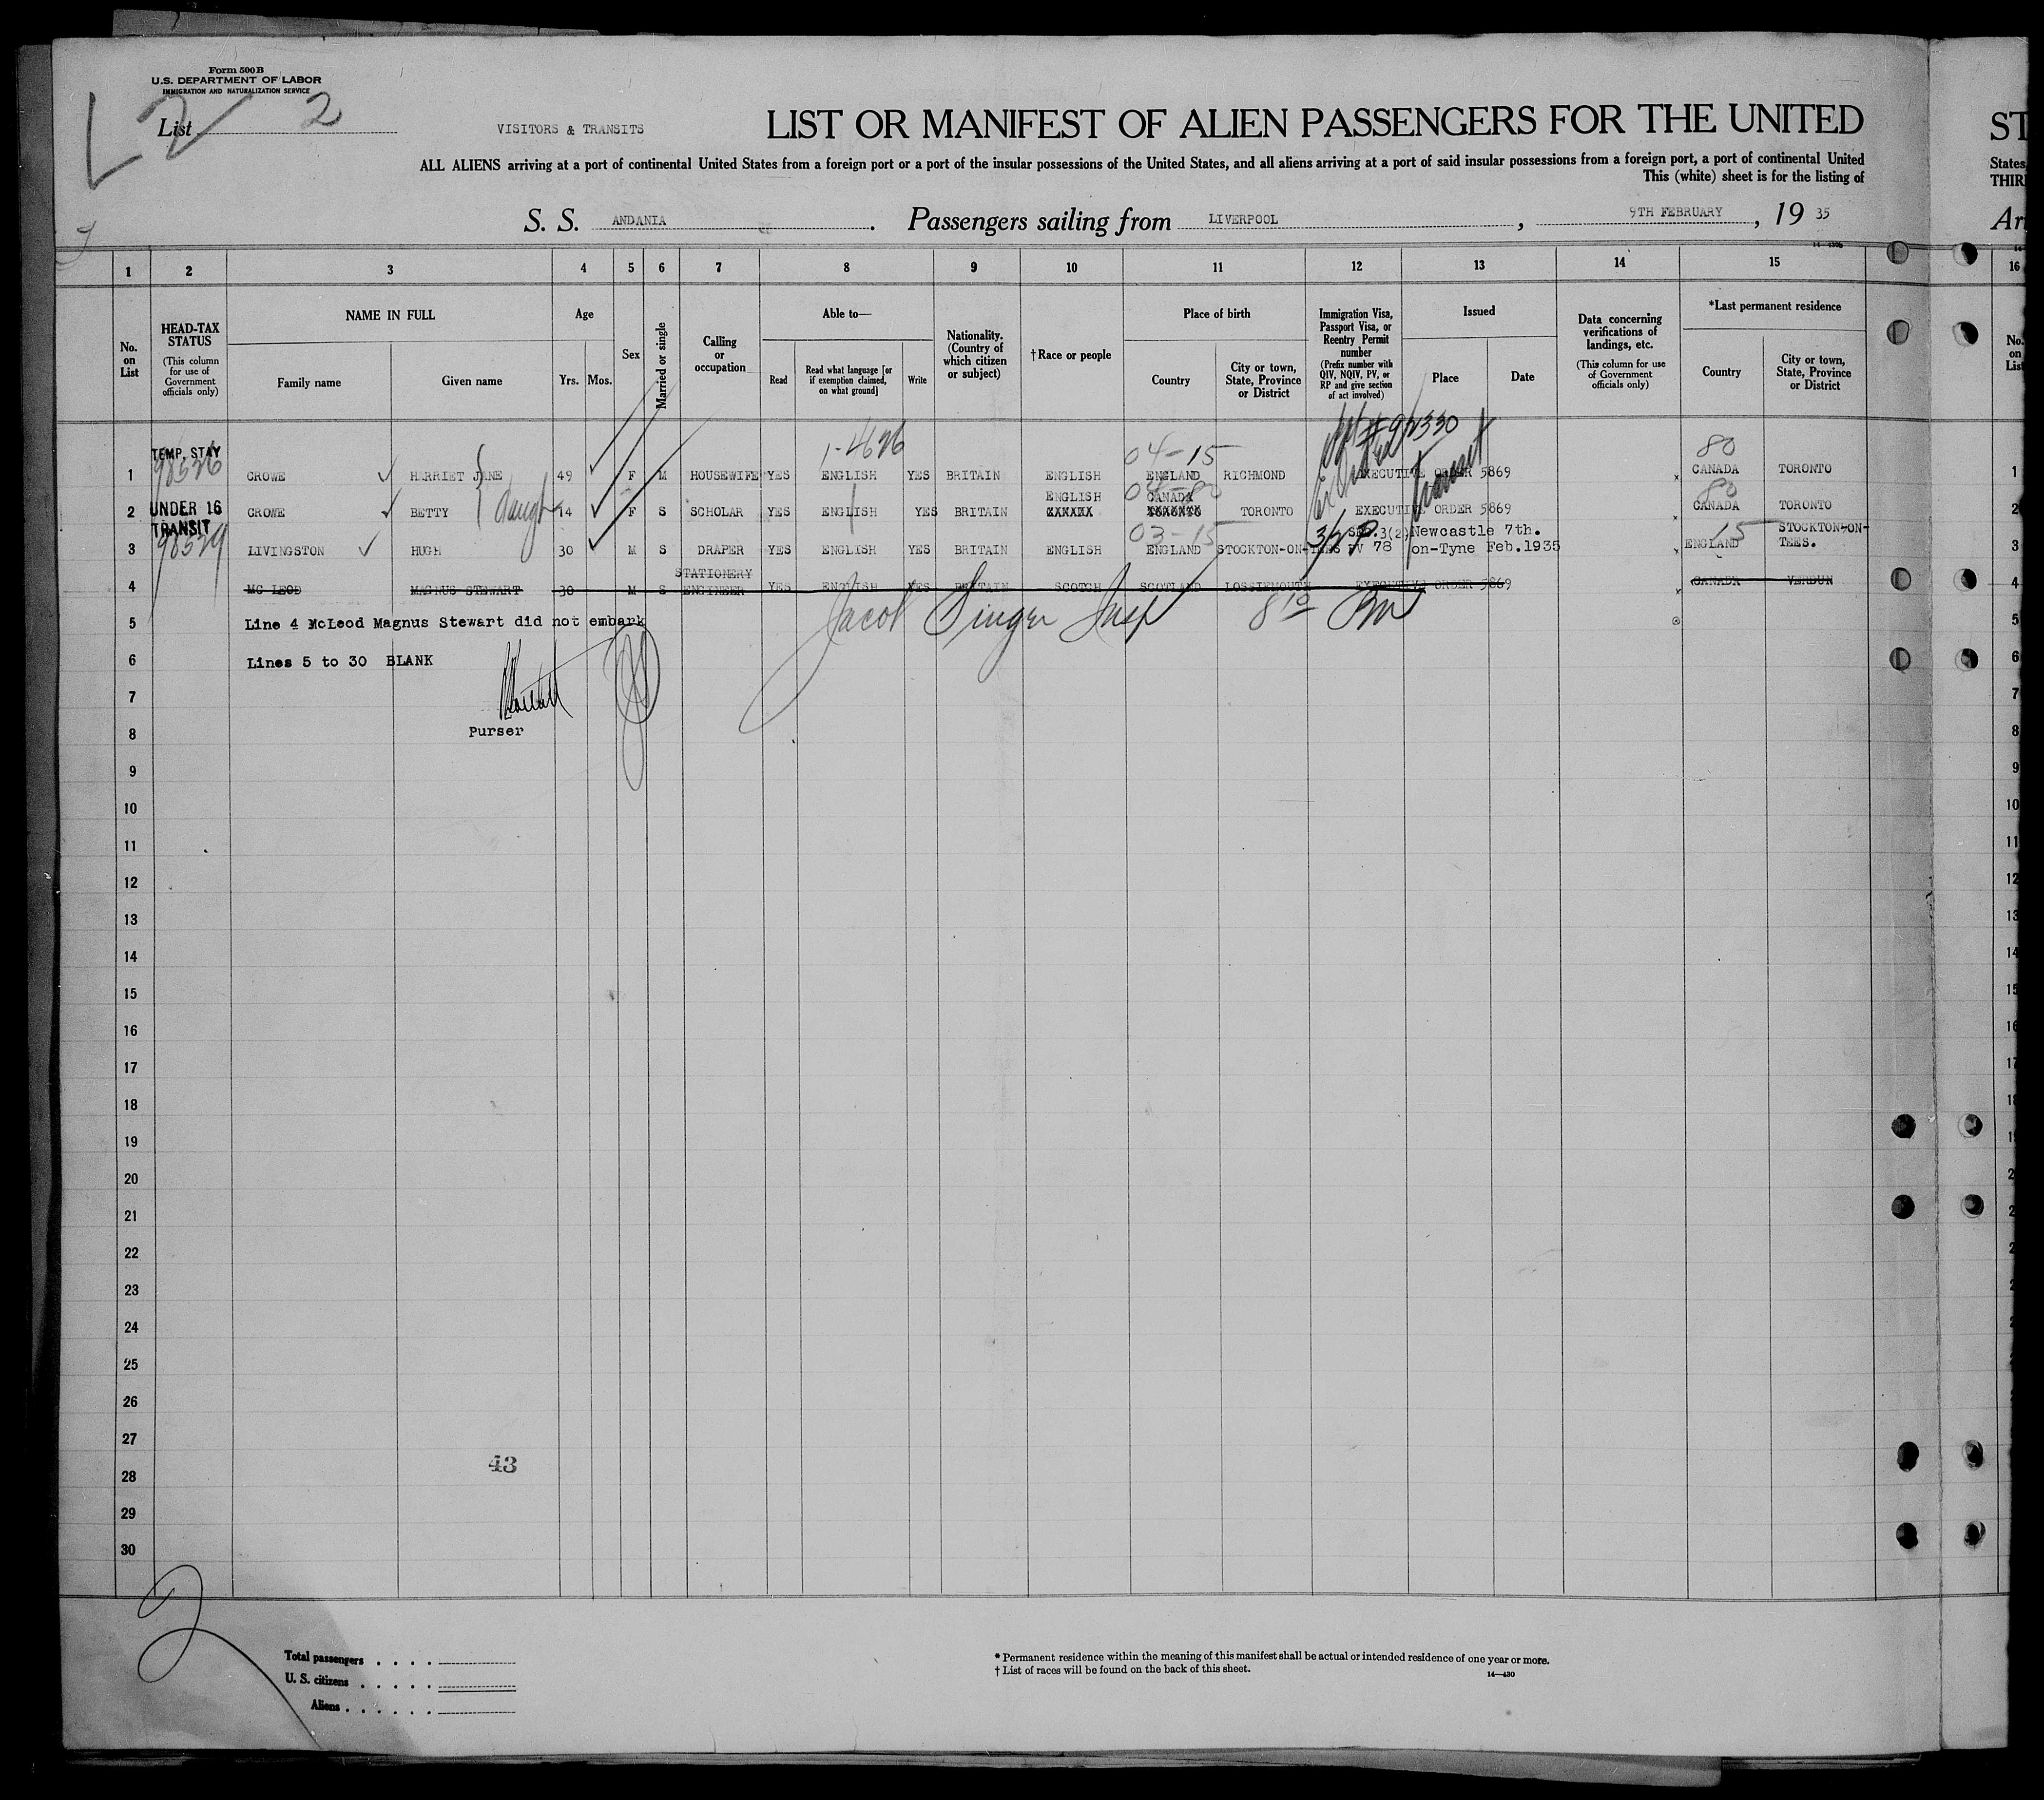 Form 500 B
U.S. DEPARTMENT OF LABOR
IMMIGRATION AND NATURALIZATION SERVICE
L 2
List 2
VISITORS & TRANSITS
LIST OR MANIFEST OF ALIEN PASSENGERS FOR THE UNITED
ST
ALL ALIENS arriving at a port of continental United States from a foreign port or a port of the insular possessions of the United States, and all aliens arriving at a port of said insular possessions from a foreign port, a port of continental United
States
This (white) sheet is for the listing of
THIR
S. S. ANDANIA. Passengers sailing from LIVERPOOL, 9TH FEBRUARY, 19 35
Arr
1 2 3 4 5 6 7 8 9 10 11 12 13 14 15 16
No. on List
HEAD-TAX STATUS
(This column for use of Government officials only)
NAME IN FULL
Family name
Given name
Age
Yrs.
Mos.
Sex
Married or single
Calling or occupation
Able to—
Read
Read what language [or if exemption claimed, on what ground]
Write
Nationality. (Country of which citizen or subject)
†Race or people
Place of birth
Country
City or town, State, Province or District
Immigration Visa, Passport Visa, or Reentry Permit number
(Prefix number with QIV, NQIV, PV, or RP and give section of act involved)
Issued
Place
Date
Data concerning verifications of landings, etc.
(This column for use of Government officials only)
*Last permanent residence
Country
City or town, State, Province or District
No. on List
1-4626
04-15
80
TEMP. STAY
98526
1 CROWE HARRIET JANE 49 F M HOUSEWIFE YES ENGLISH YES BRITAIN ENGLISH ENGLAND RICHMOND EXECUTIVE ORDER 5869 CANADA TORONTO 1
daught
Transit
ENGLISH
CANADA
04-80
80
UNDER 16
2 CROWE BETTY 14 F S SCHOLAR YES ENGLISH YES BRITAIN XXXXXX TORONTO TORONTO EXECUTIVE ORDER 5869 CANADA TORONTO 2
TRANSIT
98529
03-15
3/2
15
3 LIVINGSTON HUGH 30 M S DRAPER YES ENGLISH YES BRITAIN ENGLISH ENGLAND STOCKTON-ON-TEES SEC.3(2) PV 78 Newcastle 7th. on-Tyne Feb.1935 ENGLAND STOCKTON-ON-TEES. 3
4 MC LEOD MAGNUS STEWART 30 M S STATIONERY ENGINEER YES ENGLISH YES BRITAIN SCOTCH SCOTLAND LOSSIEMOUTH EXECUTIVE ORDER 5869 CANADA VERDUN 4
5 Line 4 McLeod Magnus Stewart did not embark 5
Jacob Singer Insp 8 10 PM
6 Lines 5 to 30 BLANK 6
7 7
8 Purser 8
9 9
10 10
11 11
12 12
13 13
14 14
15 15
16 16
17 17
18 18
19
20
21
22
23
24
25
26
27
43
28
29
30
2
Total passengers
U. S. citizens
Aliens
* Permanent residence within the meaning of this manifest shall be actual or intended residence of one year or more.
† List of races will be found on the back of this sheet.
14—430